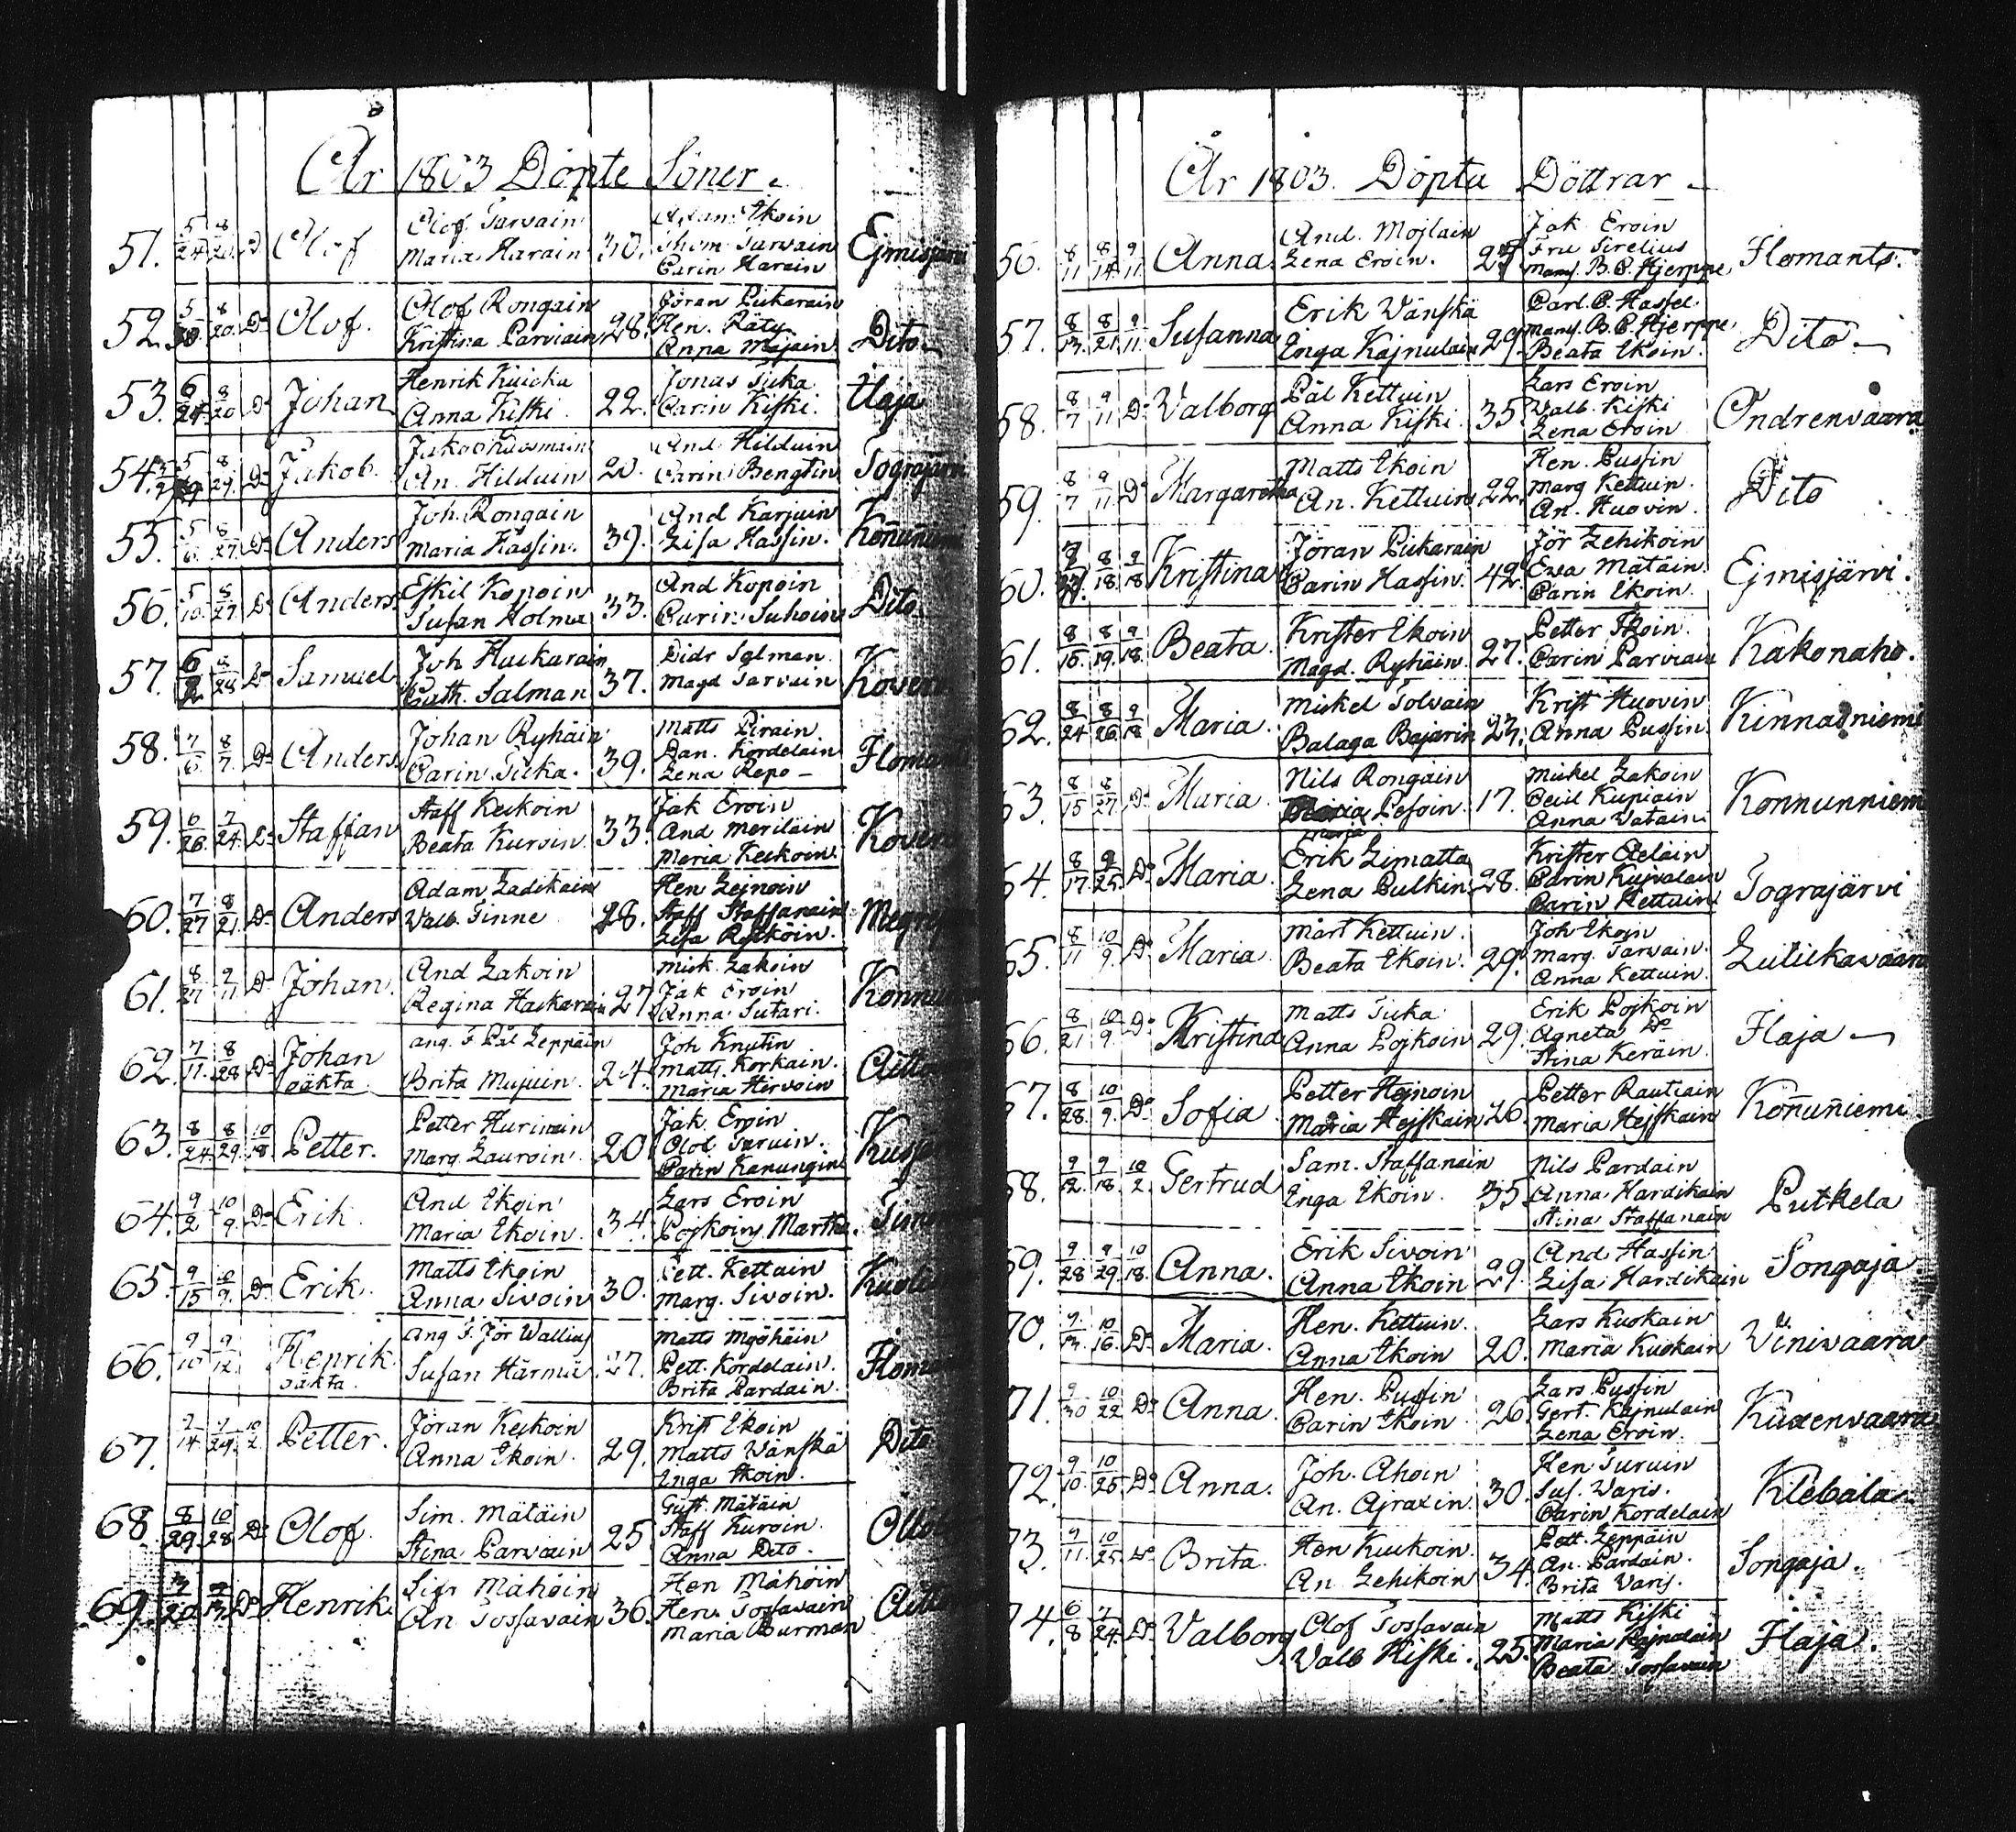 År 1803 Döpte Söner.
51. 5/24 8/20 Do Olof Olof Tarvain Maria Harain 30. Adam Ekoin Thom Tarvain Carin Harain Ejmisjärvi
52. 5/30 8/20 Do Olof. Olof Rongain Kristina Parviain 28. Jöran Pikarain Hen. Räty Anna Majain Dito
53. 6/24 8/20 Do Johan Henrik Kuicka Anna Kiski. 22. Jonas Tuka Carin Kiski. Ilaja
54. 8/29 Do Jakob. An. Hilduin 20. And Hilduin Carin Bengtin Tograjärvi
55. 5/6. 8/27 Do Anders Joh. Rongain Maria Hassin. 39. And Karjuin Lisa Hassin. Koñuñiemi
56. 5/10. 8/27 Do Anders. Eskil Kopoin Susan Holma 33. And Kopoin Carin Suhoin Dito
57. 6/2 8/28 Do Samuel Joh Hackarain Cath. Salman 37. Didr Salman. Magd Tarvain Kovero
58. 7/6. 8/7. Do Anders. Johan Ryhäin Carin Tuka. 39. Matts Pirain. Dan. Kordelain Lena Repo - Ilomants
59. 6/26. 7/24. Do Staffan Staff Keikoin Beata Kuroin 33. Jak Eroin And Meriläin Maria Keikoin. Kovero
60. 7/27 8/21. Do Anders Adam Ladikain Walb. Tinne 28. Hen Lejnoin Staff Staffanain Lisa Rytköin.
61. 8/27 9/11 Do Johan. And Lakoin Regina Hackarain 27 Mick. Lakoin Jak Eroin Anna Sutari.
62. 7/11. 8/28 Do Johan oäkta. ang. F. Pål Leppäin Brita Mujuin. 24. Joh Knutin Matts Korkain. Maria Hirvoin
63. 8/24 8/29. 10/18 Petter. Petter Hurinain Marg. Lauroin. 20. Jak. Eroin Olof Taruin. Carin Kanungin
64. 9/2 10/9. Do Erik And Ekoin Maria Ekoin. 34. Lars Eroin Pojkoin Martha.
65. 9/15 10/9. Do Erik. Matts Ekoin Anna Sivoin 30. Pett. Kettuin Marg. Sivoin.
66. 9/10 9/12. Henrik oäkta. ang F. Jör Wallius Susan Härmä. 27. Matts Myöhäin Pett. Kordelain. Brita Pardain. Ilomants
67. 7/14 10/2. Petter. Jöran Keikoin Anna Ekoin. 29. Krist Ekoin Matts Vänskä Inga Ekoin. Dito
68. 8/29 10/28 Do Olof. Sim. Mätäin Stina Parviain 25. Gust. Mätäin Staff Kuroin. Anna Dito.
69. 7/20 Do Henrik. Sigr Mähöin An Tossavain 36. Hen Mähöin Hen. Tossavain Maria Burman
År 1803. Döpta Döttrar
56. 8/11 8/14 9/11 Anna And. Mojlain Lena Eroin. 25 Jak Eroin Fru Sirelius Mams. B. C. Hjerppe Ilomants.
57. 8/13. 8/21 9/11. Susanna Erik Vänskä Inga Kajnulain 29. Carl. C. Hassel. Mams. B. C. Hjerppe. Beata Ekoin. Dito
58. 8/7 9/11. Do Valborg Pål Kettuin Anna Kiski. 35. Lars Eroin Walb. Kiski Lena Eroin Ondrenvaara
59. 8/7 9/11. Do Margaretha Matts Ekoin An. Kettuin 22. Hen. Pussin Marg Kettuin. An. Huovin. Dito
60. 8/18. 9/18 Kristina Jöran Pikarain Carin Hassin. 42. Jör Lehikoin Ewa Mätäin. Carin Ekoin. Ejmisjärvi.
61. 8/15. 8/19. 9/18. Beata. Krister Ekoin Magd. Ryhäin. 27. Petter Ekoin. Carin Parviain Kakonaho.
62. 8/24 8/26 9/18 Maria. Mickel Tolvain Balaga Bajarin 27. Krist Huovin Anna Pussin. Kinnasniemi
63. 8/15 8/27. Do Maria. Nils Rongain Maria Pesoin. 17. Mickel Lakoin Cecil Kupiain Anna Vatain. Konnunniemi
64. 8/17. 9/25. Do Maria. Erik Limatta Lena Pulkin. 28. Krister Aeläin Carin Kujvalain Carin Kettuin. Tograjärvi
65. 8/11 10/9. Do Maria. Mårt Kettuin. Beata Ekoin. 29. Joh Ekoin Marg. Tarvain. Anna Kettuin. Lutikavaara
66. 8/21 10/9. Do Kristina Matts Tuka Anna Pojkoin 29. Erik Pojkoin Agneta Do Stina Keräin. Ilaja
67. 8/28. 10/9. Do Sofia. Petter Hejnoin Maria Hejskain 26. Petter Rautiain Maria Hejskain Koñuñiemi
68. 9/12. 9/18. 10/2. Gertrud Sam. Staffanain Inga Ekoin. 35. Nils Pardain Anna Hardikain Stina Staffanain Putkela
69. 9/28 9/29. 10/18. Anna. Erik Sivoin Anna Ekoin 29. And Hassin Lisa Hardikain Songaja
70. 9/13. 10/16. Do Maria. Hen. Kettuin. Anna Ekoin 20. Lars Kuokain Maria Kuokain Vinivaara
71. 9/30 10/22 Do Anna. Hen. Pussin Carin Ekoin 26. Lars Pussin Gert. Kajnulain Lena Eroin. Kuxenvaara
72. 9/10. 10/25. Do Anna. Joh. Ahoin An. Ajraxin. 30. Hen Turuin Sus. Waris. Carin Kordelain Klebala.
73. 9/11. 10/25. Do Brita. Hen Kuckoin. An Lehikoin 34. Pett. Leppäin An. Pardain. Brita Varis. Songaja.
74. 6/8 7/24. Do Valborg Olof Tossavain Valb Kiski. 25. Matts Kiski Maria Kajnulain Beata Tossavain Ilaja.